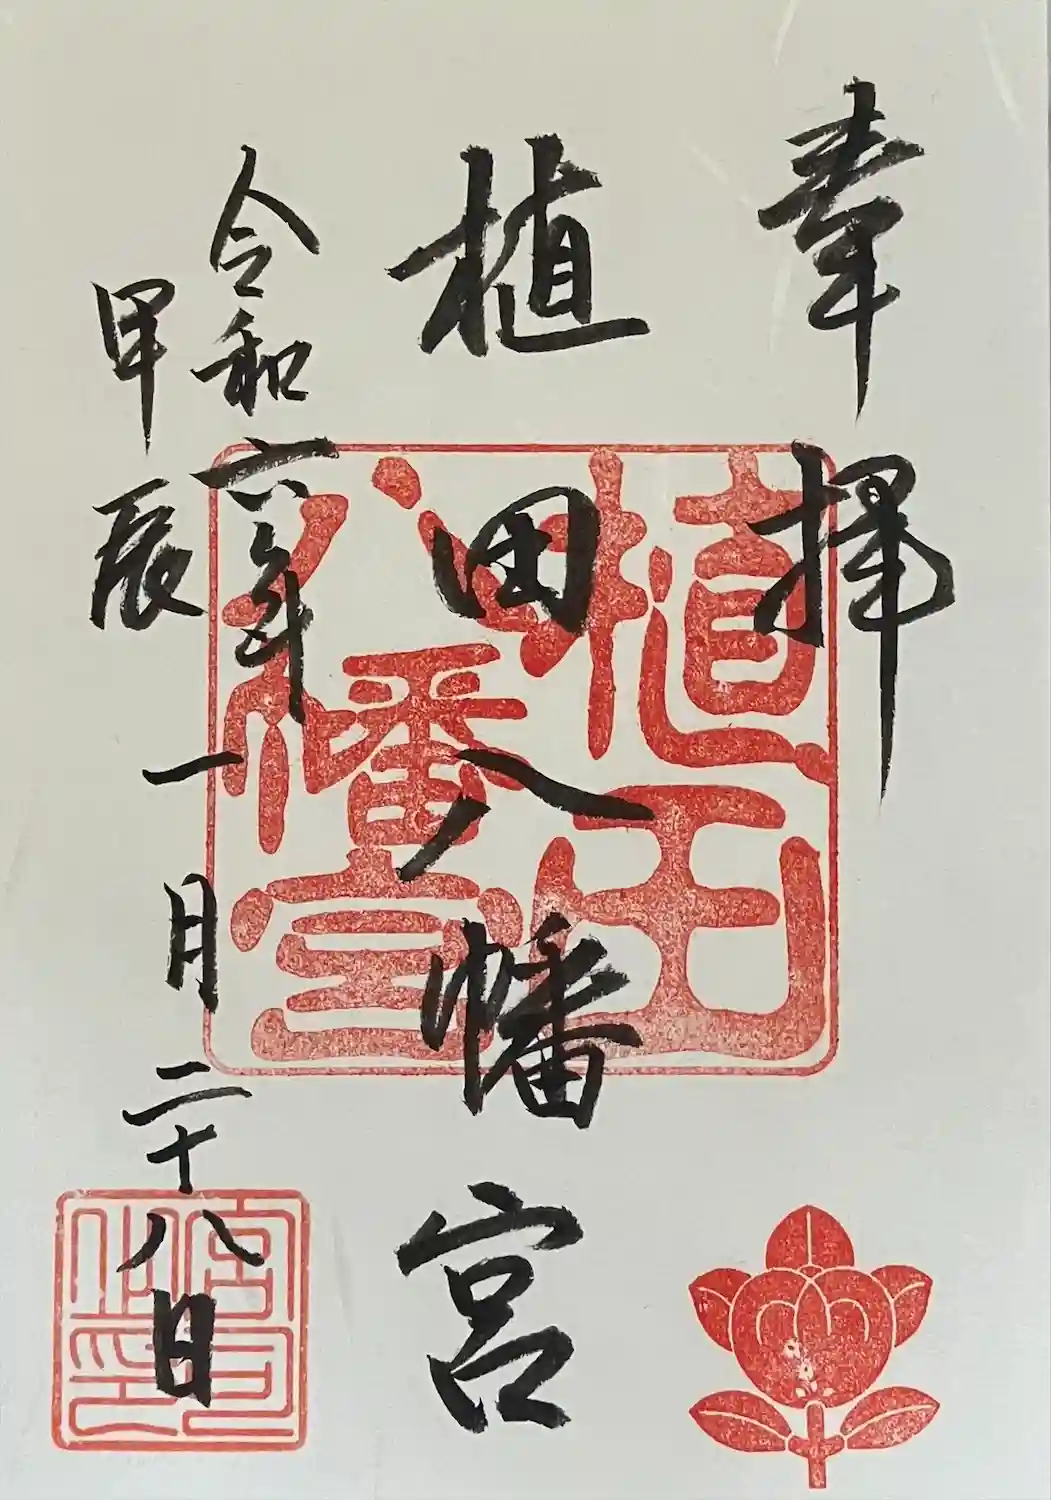 奉拝
植田八幡宮
令和六年一月二十八日
甲辰
植田
八幡宮
宮司
之印